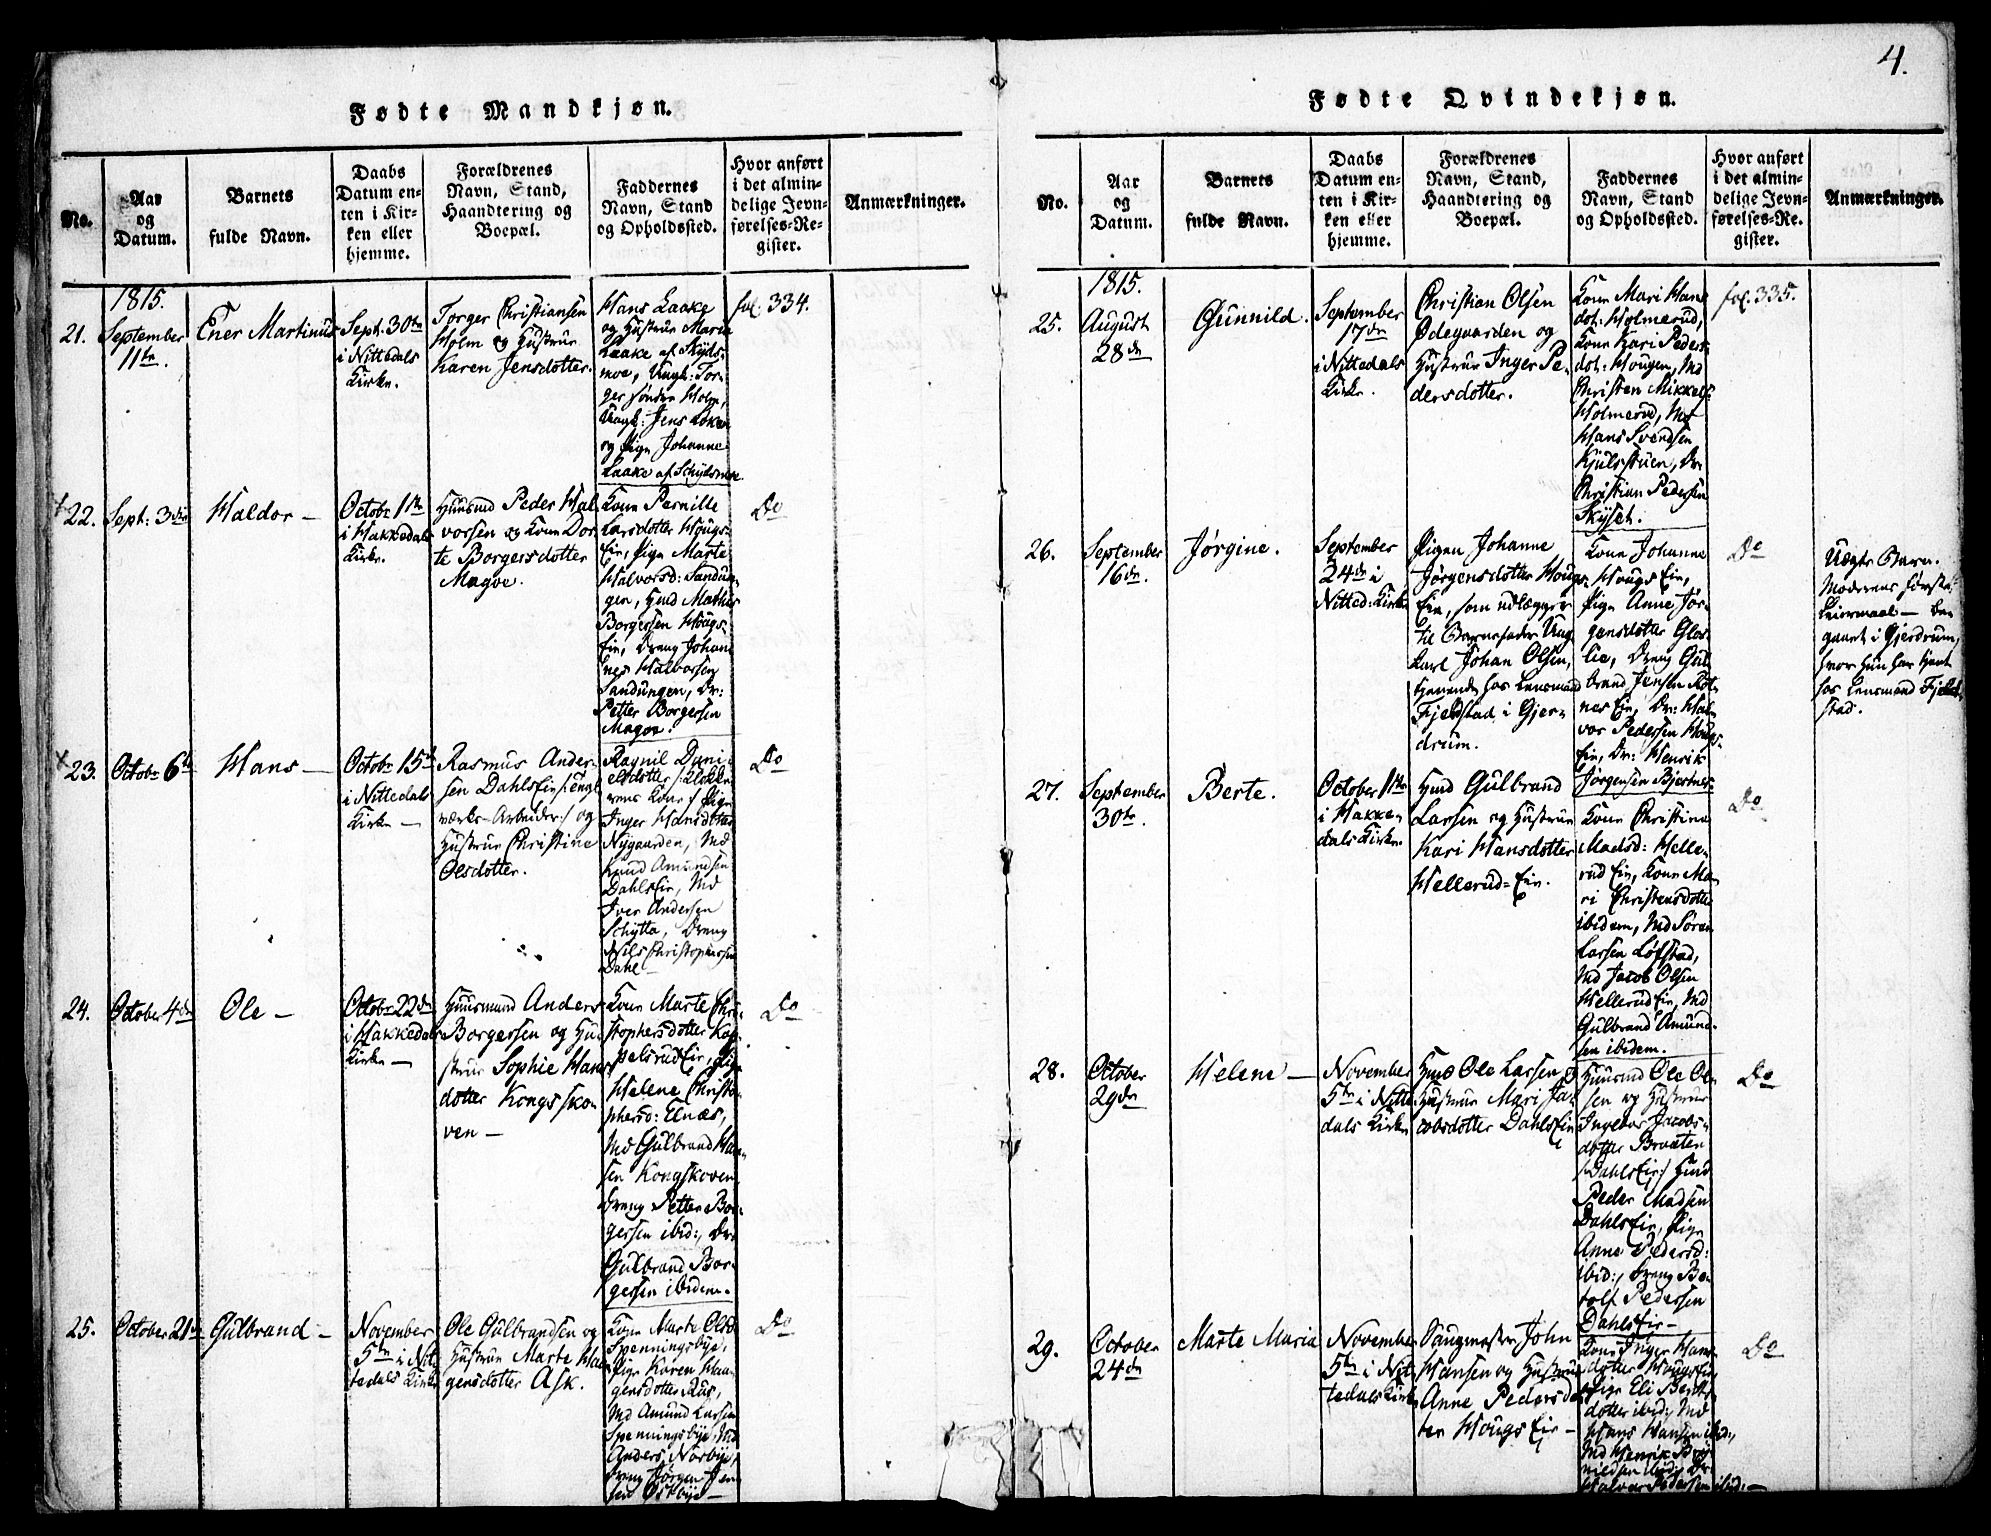 4.
Fødte Mandkjøn.
No.
Aar
og
Datum.
Barnets
fulde Navn.
Daabs
Datum en-
ten i Kir-
ken eller
hjemme.
Forældrenes
Navn, Stand,
Haandtering og
Boepæl.
Faddernes
Navn, Stand
og Opholdssted.
Hvor anført
i det almin-
delige Jevn-
førelses-Re-
gister.
Anmærkninger.
1815.
21.
September
11te.
Ener Martinus
Sept: 30te
i Nittedals
Kirke.
Torger Christiansen
Holm og Hustrue
Karen Jensdotter.
Hans Laake
og Hustrue Maria
Laake af Skyds-
moe, Ungk: Tor-
ger søndre Holm,
Ungk: Jens Løken
og Pige Johanne
Laake af Schydsmoe
fol. 334.
22.
Sept: 3die
Haldor –
Octobr 1ste
i Hakkedals
Kirke.
Huusmd Peder Hal
vorsen og Kone Dor
te Borgersdotter
Magve.
Kone Pernille
Larsdotter Hougs-
Eie, Pige Marte
Halvorsd: Sandun-
gen, Hmd Mathis
Borgersen Hougs-
Eie, Dreng Johan
nes Halvorsen
Sandungen, Dr:
Petter Borgersen
Magve.
Do
23.
Octobr 6te
Hans –
Octobr 15de
i Nittedals
Kirke –
Rasmus Ander-
sen DahlsEie
værks-Arbeider:/ og
Hustrue Christine
Olsdotter.
Ragnil Dani-
elsdotter /Klokke-
rens Kone/ Pige
Inger Hansdotter
Nygaarden, Md
Knud Amundsen
DahlsEie, Md
Iver Andersen
Schytta, Dreng
Nils Christophersen
Dahl –
Do
24.
October 4de
Ole –
Octobr 22de
i Hakkedals
Kirke –
Huusmand Anders
Borgersen og Hu-
strue Sophie Hans
dotter Kongssko-
ven –
Kone Marte Chri-
stophersdotter Kop-
pelsrudEie, Pige
Helene Christo-
phersd: Elnæs,
Md Gulbrand Han-
sen Kongskoven
Dreng Petter Bor-
gersen ibid:, Dr:
Gulbrand Bor-
gersen ibidem.
Do
25.
October 21de
Gulbrand –
November
5te i Nit-
tedals Kirke
Ole Gulbrandsen og
Hustrue Marte Haa-
gensdotter Ask.
Kone Marte Olsd:
Spenningsbye,
Pige Karen Haa-
gensdotter Rus,
Md Amund Larsen
Spenningsbye, Md
Anders Norbye,
Dreng Jørgen Jen-
sen Østbye –
Do
Fødte Qvindekjøn.
No.
Aar
og
Datum.
Barnets
fulde Navn.
Daabs
Datum en-
ten i Kir-
ken eller
hjemme.
Forældrenes
Navn, Stand,
Haandtering og
Boepæl.
Faddernes
Navn, Stand
og Opholdssted.
Hvor anført
i det almin-
delige Jevn-
førelses-Re-
gister.
Anmærkninger.
1815.
25.
August
28de
Gunnild.
September
17de
i Nittedals
Kirke.
Christian Olsen
Ødegaarden og
Hustrue Inger Pe-
dersdotter.
Kone Mari Hans
dot: Holmerud,
Kone Kari Peders
dot: Hougen, Md
Christen Mikkels:
Holmerud, Md
Hans Svendsen
Kjulsstuen, Dr:
Christian Pedersen
Skyset.
fol. 335.
26.
September
16de.
Jørgine.
September
24de i
Nitted: Kirke
Pigen Johanne
Jørgensdotter Hougs-
Eie, som udlægger
til Barnefader Ung
karl Johan Olsen,
tjenende hos Lensmand
Fjeldstad i Gjer-
drum.
Kone Johanne
HougsEie,
Pige Anne Jør-
gensdotter Glas-
lie, Dreng Gul
brand Jensen Rot-
nesEie, Dr: Hal-
vor Pedersen Hougs-
Eie, Dr: Henrik
Jørgensen Bjertnes-
Do
Uægte Barn.
Moderens første
Leiermaal – be-
gaaet i Gjerdrum,
hvor hun har tjent
hos Lensmand Fjeld-
stad.
27.
September
30te.
Berte.
October 1ste
i Hakke-
dals Kirke.
Hmd Gulbrand
Larsen og Hustrue
Kari Hansdotter
Hellerud-Eie.
Kone Christine
Madsd: Helle-
rudEie, Kone Ma-
ri Christensdotter
ibidem, Md Søren
Larsen Løfstad,
Md Jacob Olsen
HellerudEie, Md
Gulbrand Amund-
sen ibidem.
Do
28.
October
29de
Helene –
November
5te i Nitte
dals Kirke
Hmd Ole Larsen og
Hustrue Mari Ja-
cobsdotter DahlsEie
Huusmd Ole Ol-
sen og Hustrue
Ingebor Jacobs-
dotter Braaten
/DahlsEie:/ Hmd
Peder Madsen
DahlsEie, Pige
Anne Pedersd:
ibid:, Dreng Bo-
tolf Pedersen
DahlsEie –
Do
29.
October
24de
Marte Maria
November
5te i Nit-
tedals Kirke
Saugmester John
Hansen og Hustrue
Anne Pedersdot
ter HougsEie –
Kone Inger Hans
dotter HougsEie
Pige Eli Berths
dotter ibid: Md
Hans Hansen ibid:,
Md Henrik
nildsen ibid: Dr
Halvor Pedersen ibid: –
Do